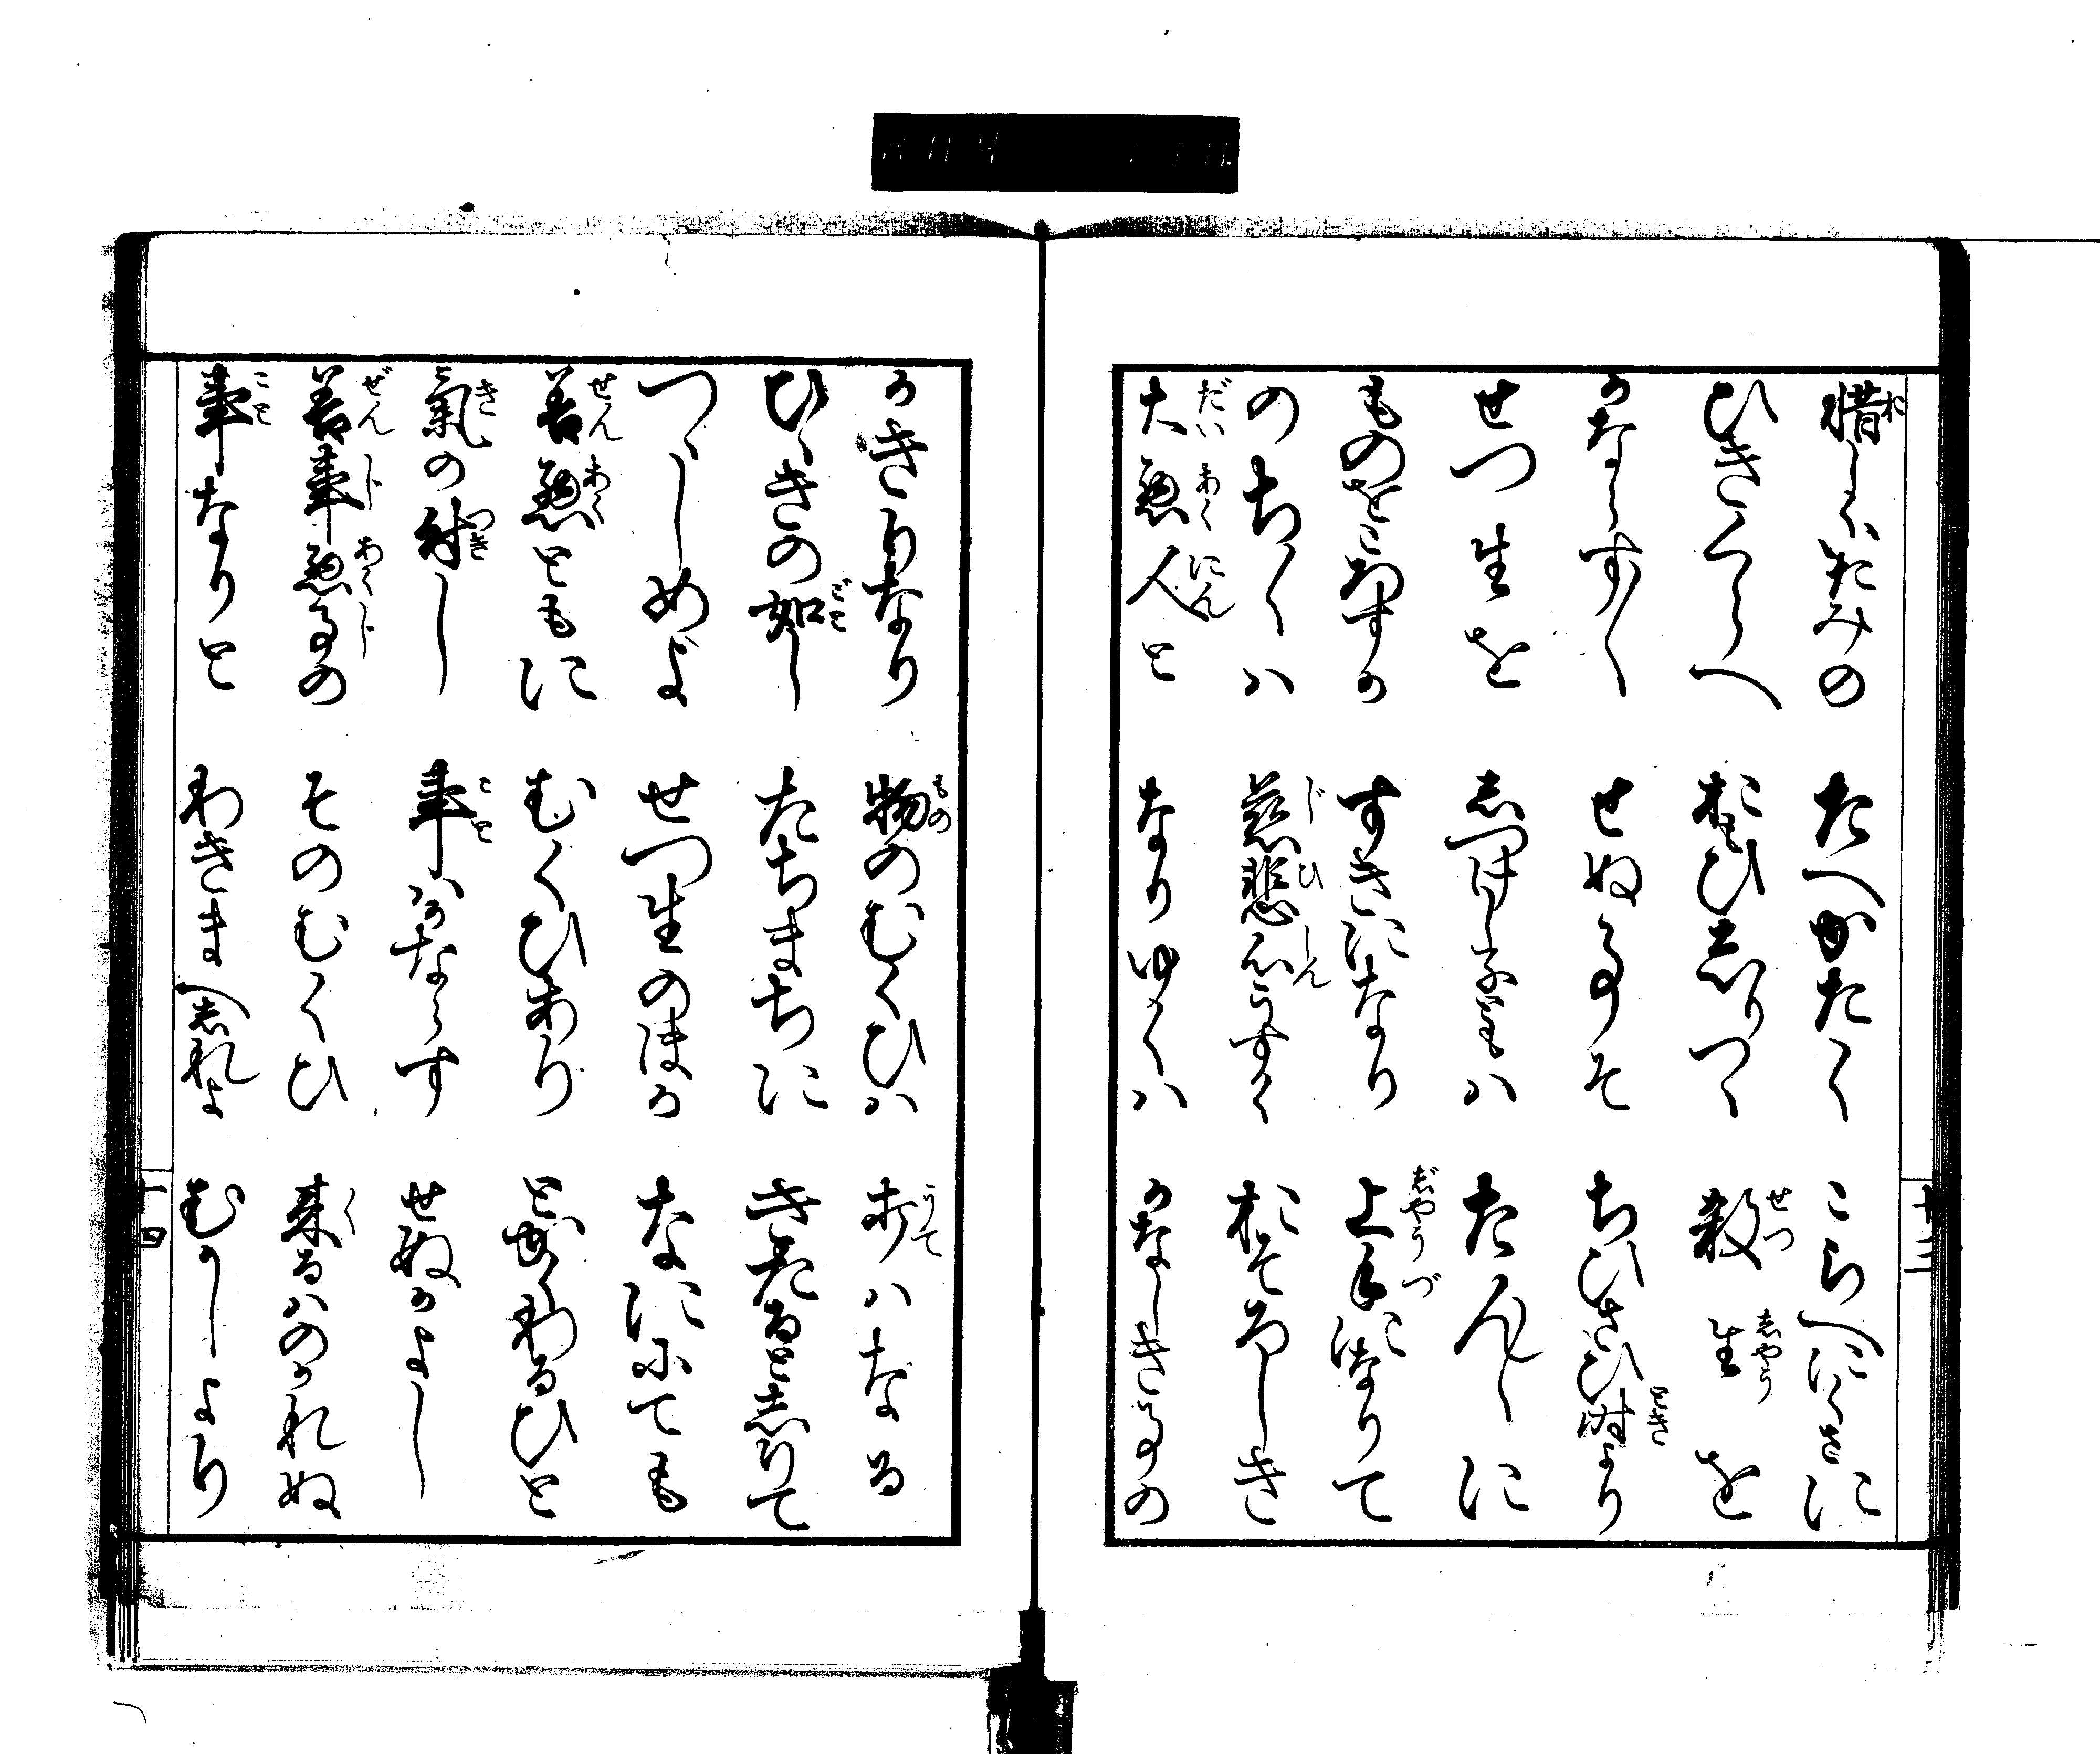 惜しくいたみの　たへかたく　こらへにくきに
ひきくらへ　おもひしりつゝ　殺生を
かならす〳〵　せぬ事そ　ちひさひ時より
せつ生を　しつけし子ともハ　たん〳〵に
ものをころすか　すきになり　上手になりて
のち〳〵ハ　慈悲心うすく　おそろしき
大悪人と　なりゆくハ　かなしき事の
かきりなり　物のむくひハ　打てハなる
ひゝきの如し　たちまちに　きたると志りて
つゝしめよ　せつ生のほか　なににても
善悪ともに　むくひあり　とかくわるひと
氣の付し　事ハかならす　せぬかよし
善事悪事の　そのむくひ　来るハのかれぬ
事なりと　わきまへしれよ　むかしより
十三
十四